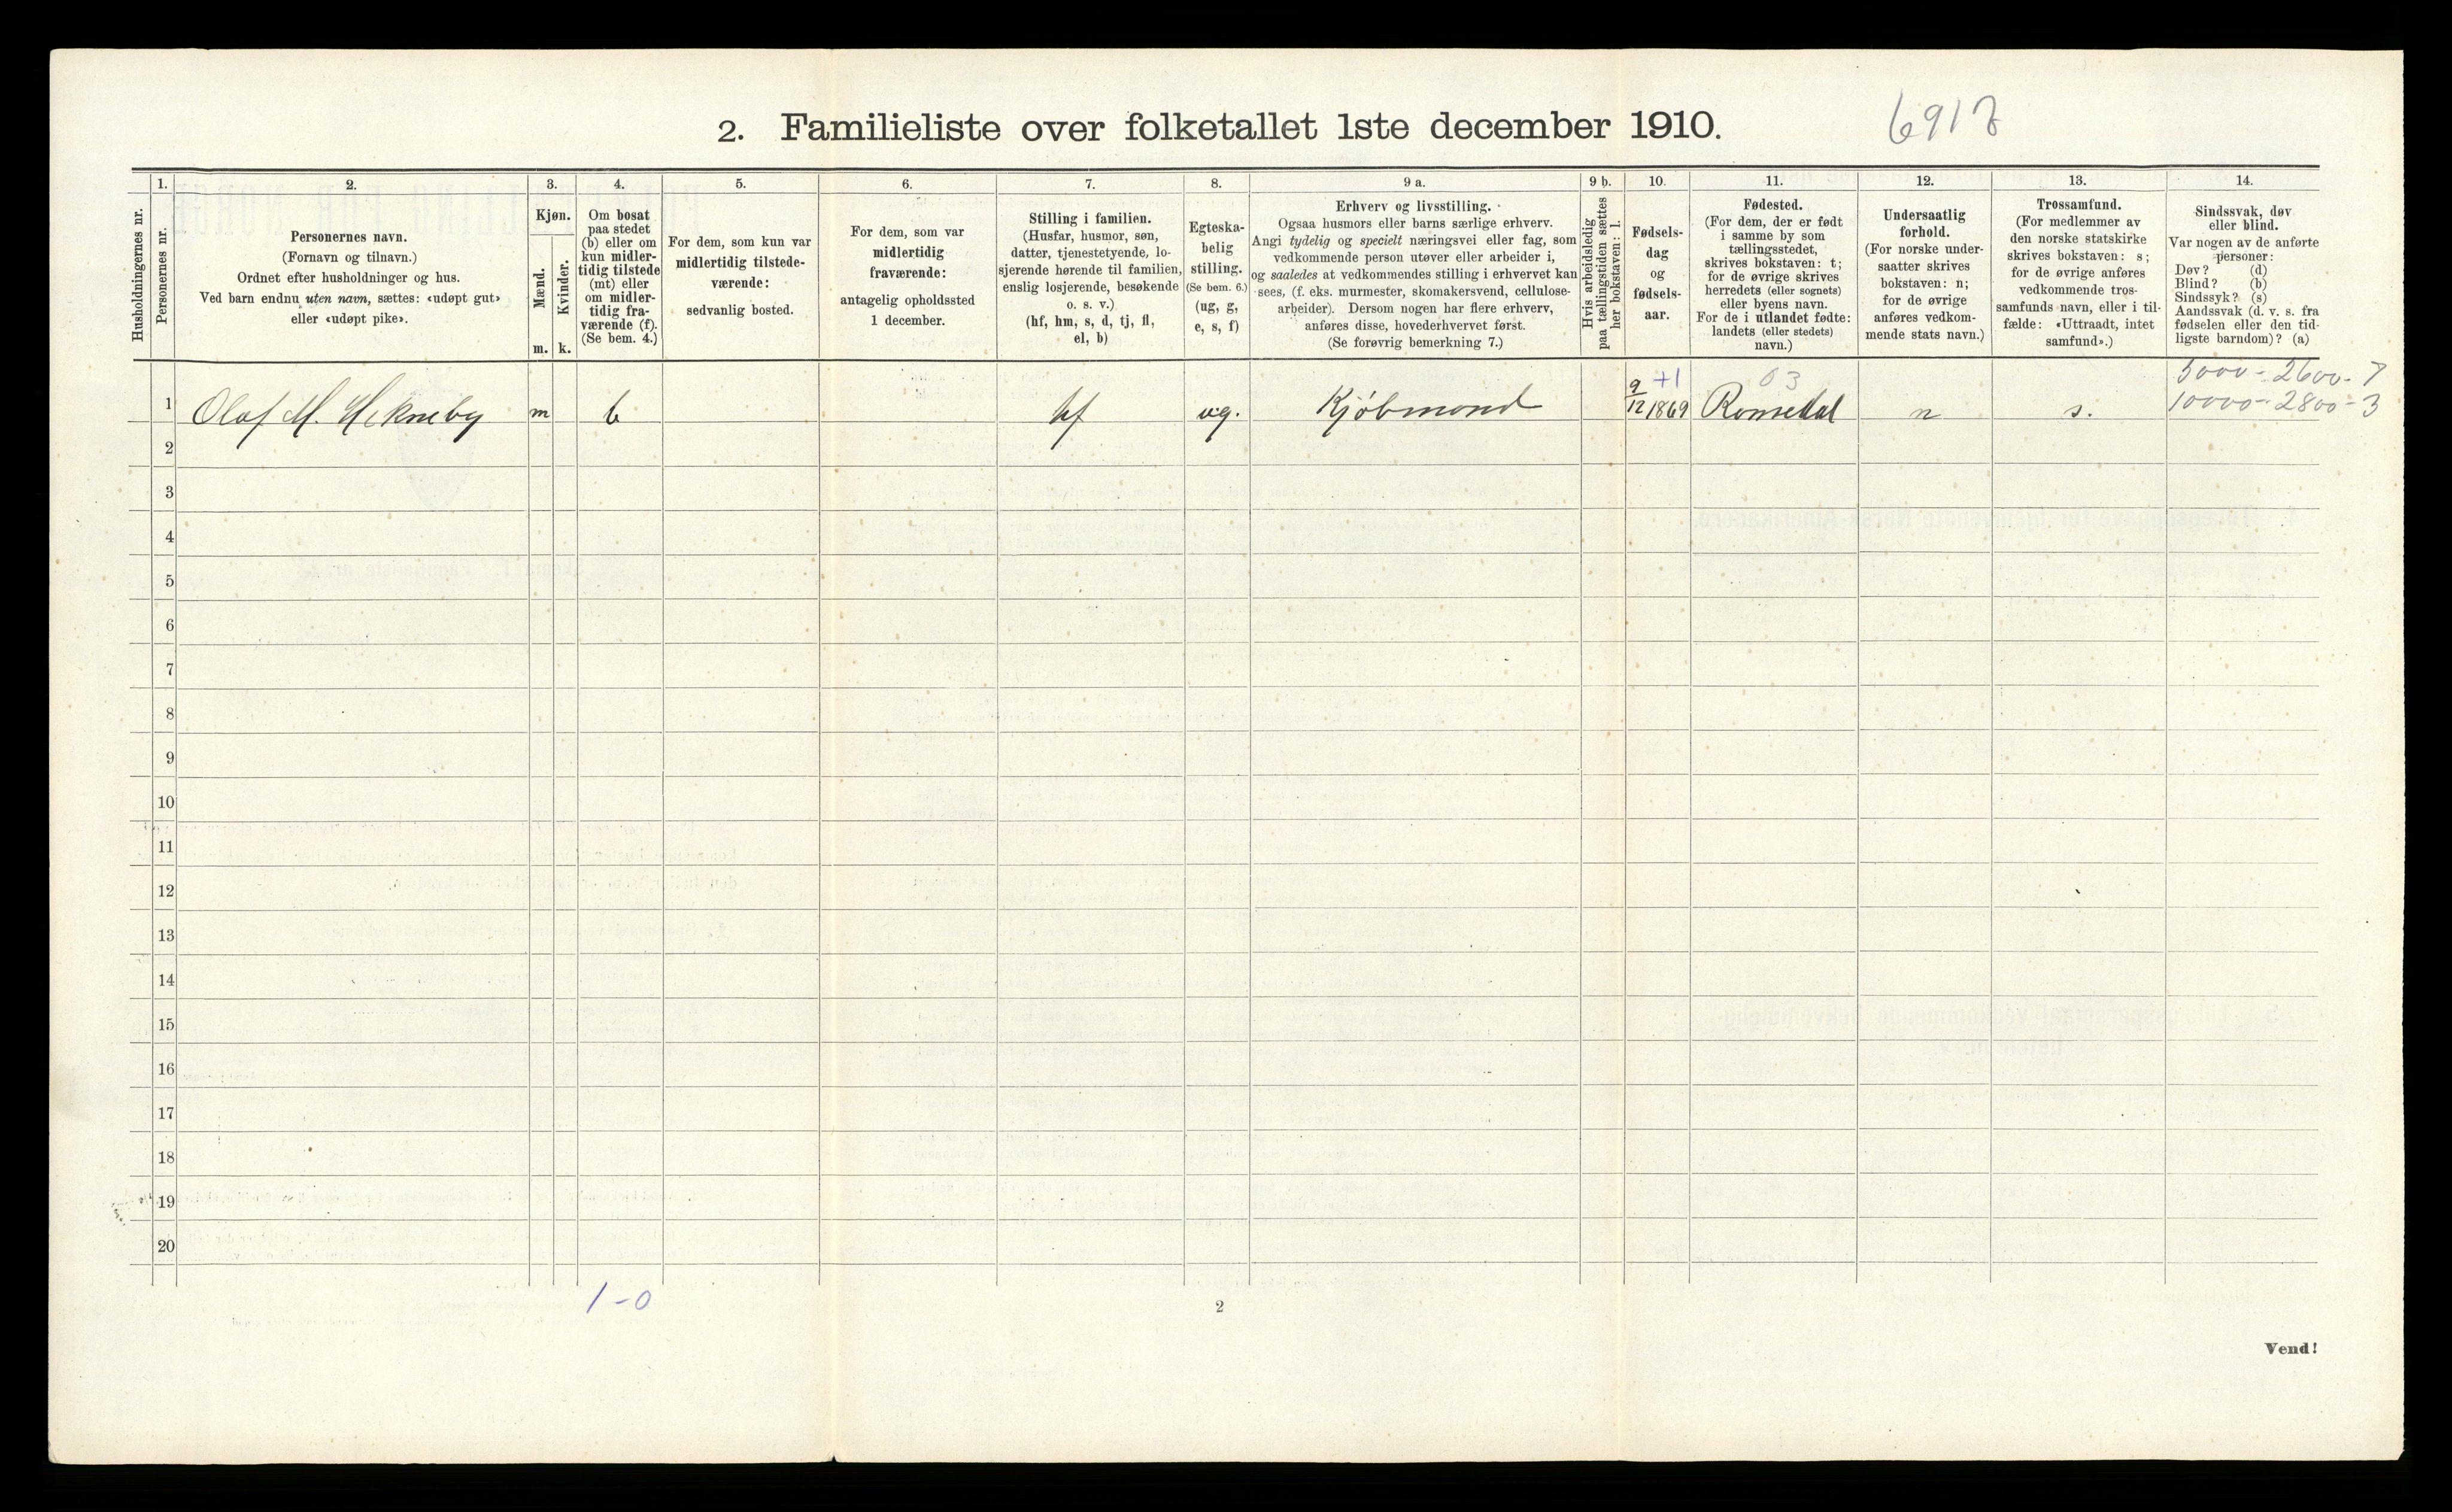 2. Familieliste over folketallet 1ste december 1910.
6917
1. 2. 3. 4. 5. 6. 7. 8. 9 a. 9 b. 10. 11. 12. 13. 14.
Husholdningernes nr.
Personernes nr.
Personernes navn.
(Fornavn og tilnavn.)
Ordnet efter husholdninger og hus.
Ved barn endnu uten navn, sættes: «udøpt gut»
eller «udøpt pike».
Kjøn.
Mænd.
Kvinder.
m. k.
Om bosat
paa stedet
(b) eller om
kun midler-
tidig tilstede
(mt) eller
om midler-
tidig fra-
værende (f).
(Se bem. 4.)
For dem, som kun var
midlertidig tilstede-
værende:
sedvanlig bosted.
For dem, som var
midlertidig
fraværende:
antagelig opholdssted
1 december.
Stilling i familien.
(Husfar, husmor, søn,
datter, tjenestetyende, lo-
sjerende hørende til familien,
enslig losjerende, besøkende
o. s. v.)
(hf, hm, s, d, tj, fl,
el, b)
Egteska-
belig
stilling.
(Se bem. 6.)
(ug, g,
e, s, f)
Erhverv og livsstilling.
Ogsaa husmors eller barns særlige erhverv.
Angi tydelig og specielt næringsvei eller fag, som
vedkommende person utøver eller arbeider i,
og saaledes at vedkommendes stilling i erhvervet kan
sees, (f. eks. murmester, skomakersvend, cellulose-
arbeider). Dersom nogen har flere erhverv,
anføres disse, hovederhvervet først.
(Se forøvrig bemerkning 7.)
Hvis arbeidsledig
paa tællingstiden sættes
her bokstaven: l.
Fødsels-
dag
og
fødsels-
aar.
Fødested.
(For dem, der er født
i samme by som
tællingsstedet,
skrives bokstaven: t;
for de øvrige skrives
herredets (eller sognets)
eller byens navn.
For de i utlandet fødte:
landets (eller stedets)
navn.)
Undersaatlig
forhold.
(For norske under-
saatter skrives
bokstaven: n;
for de øvrige
anføres vedkom-
mende stats navn.)
Trossamfund.
(For medlemmer av
den norske statskirke
skrives bokstaven: s;
for de øvrige anføres
vedkommende tros-
samfunds navn, eller i til-
fælde: «Uttraadt, intet
samfund».)
Sindssvak, døv
eller blind.
Var nogen av de anførte
personer:
Døv? (d)
Blind? (b)
Sindssyk? (s)
Aandssvak (d. v. s. fra
fødselen eller den tid-
ligste barndom)? (a)
+1 03 5000 - 2600 - 7
1 Olaf M. Hekneby m b hf ug. Kjøbmand 9/12 1869 Romedal n s. 10000 - 2800 - 3
2
3
4
5
6
7
8
9
10
11
12
13
14
15
16
17
18
19
20
1-0
2
Vend!